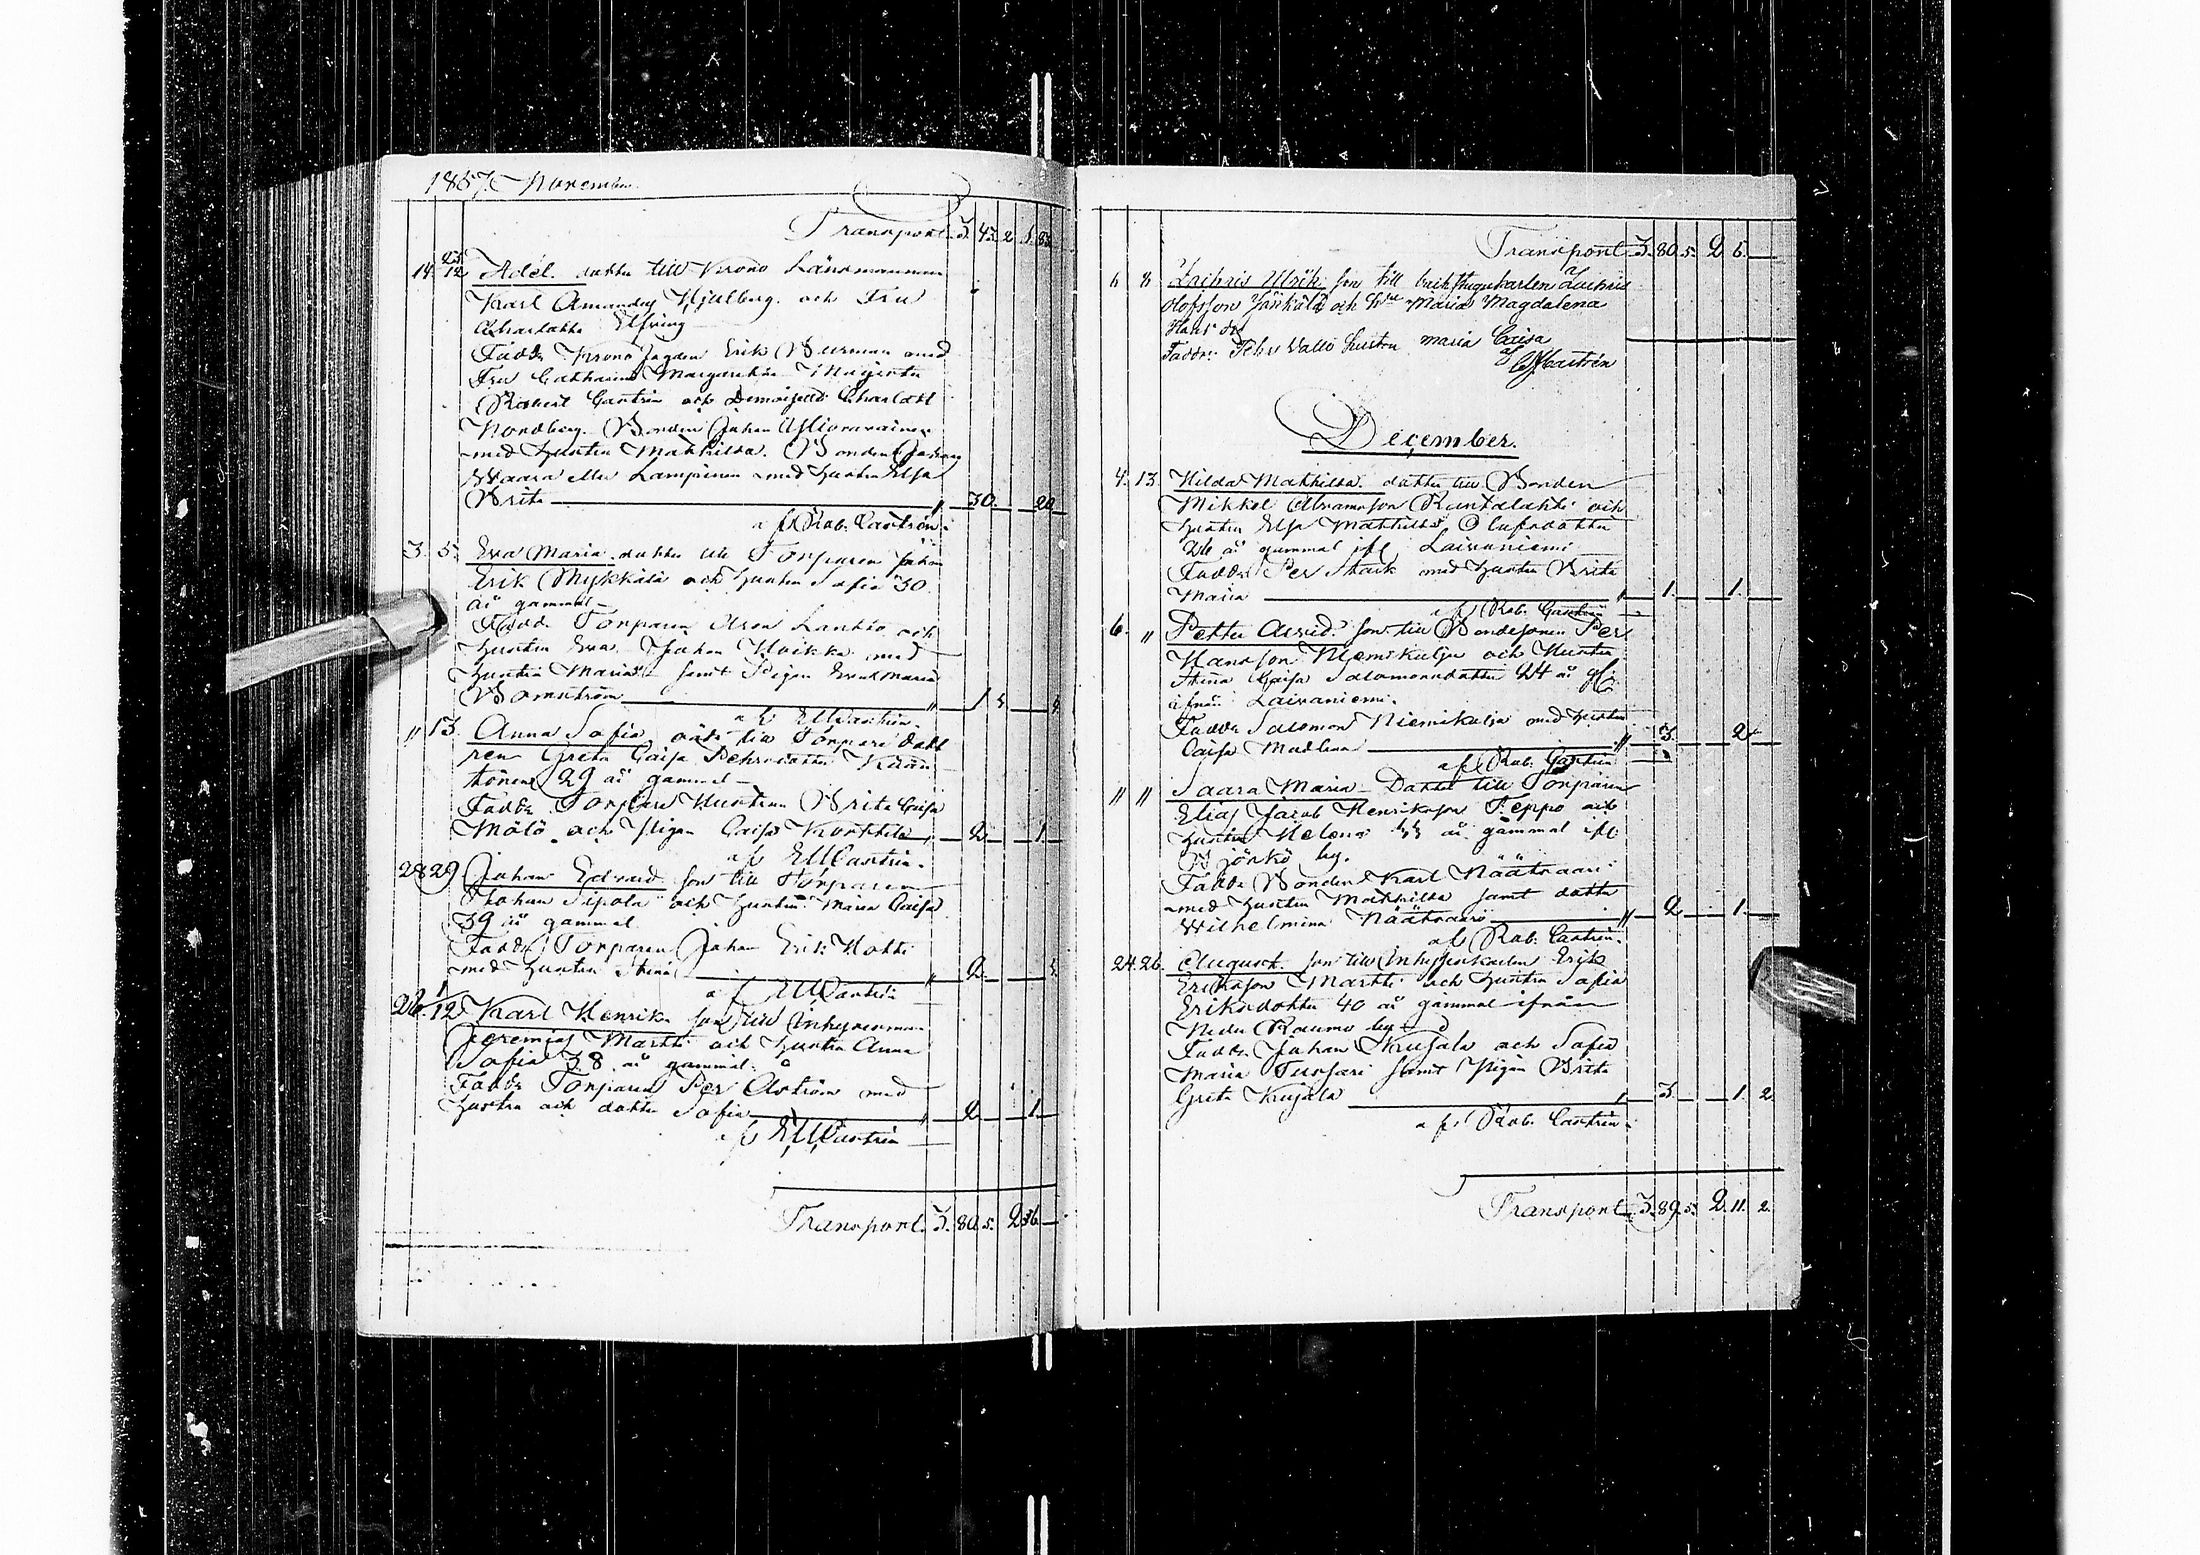 1857. November
Transport 3. 43. 2
14. 25/12 Adél. dotter till Krono Länsmannen
Karl Amandus Hjulberg och Fru
Charlotta Elfving
Fadd. Krono fogden Erik Burman med
Fru Catharina Margaretha Magister
Robert Castrén och Demoiselle Charlott
Nordberg. Bonden Johan
med hustru Mathilda. Bonden
Waara eller Lampinen med hustru Elsa
Brita " 30. 20
af Rob. Castrén
3. 5. Eva Maria dotter till Torparen Johan
Erik Mykkälä och hustru Sofia 30
år gammal
Fadd. Torparen Aron Lantto och
hustru Eva. Johan Hoikka med
hustru Maria samt Pigan Eva Maria
Bomström "
af EM Castrén.
" 13. Anna Sofia oäkt. till Torpare dott
ren Greta Caisa Pehrsdotter
29 år gammal
Fadd. Torpare Hustrun Brita Caisa
Mälö och Pigan Caisa Korttila " 2. 1.
af EM Castrén.
28 29 Johan Edvard son till Torparen
Johan Sipola och hustru Maria Caisa
39 år gammal
Fadd. Torparen Johan Erik Hotti
med hustru Stina " 2.
af EM Castrén
26. 1/12 Karl Henrik son till Inhysesman
Jeremias Martti och hustru Anna
Sofia 38 år gammal.
Fadd. Torparen Per Åström med
hustru och dotter Sofia " 2 1.
af EM Castrén
Transport. 3. 80. 5. 2 36
Transport 3. 80. 5. 2 5.
6 8 Zachris Ulrik son till backstugukarlen Zachris
Olofsson Jänkälä och h:u Maria Magdalena
Hans dr
Faddr: Pehr Vallo hustru maria Caisa
af Castrén
December.
4. 13. Hilda Mathilda. dotter till Bonden
Mikkel Abramsson Rantalahti och
hustru Elsa Mathilda Olufsdotter
26 år gammal ifl Laivaniemi
Fadd. Per Stark med hustru Brita
Maria " 1. 1.
af Rob. Castrén
6. " Petter Arvid. son till Bondesonen Per
Hansson Niemikulju och Hustru
Stina Caisa Salomonsdotter 24 år gl.
ifrån Laivaniemi.
Fadd. Salomon Niemikulja med hustru
Caisa Madlena " 3. 2
af Rob. Castrén
" " Saara Maria Dotter till Torparen
Elias Jacob Henriksson Teppo och
hustru Helena år gammal ifl
Björkö by.
Fadd. Bonden Karl Näätsaari
med hustru Mathilda samt dotter
Wilhelmina Näätsaari " 2 1.
af Rob. Castrén.
24. 26. August. son till Inhyseskarlen Erik
Eriksson Martti och hustru Sofia
Eriksdotter 40 år gammal ifrån
Neder Raumo by
Fadd. Johan Kujala och Sofia
Maria Tuspari samt Pigan Brita
Greta Kujala " 3. 1. 2
af Rob. Castrén
Transport 3. 89. 5. 2. 11. 2.